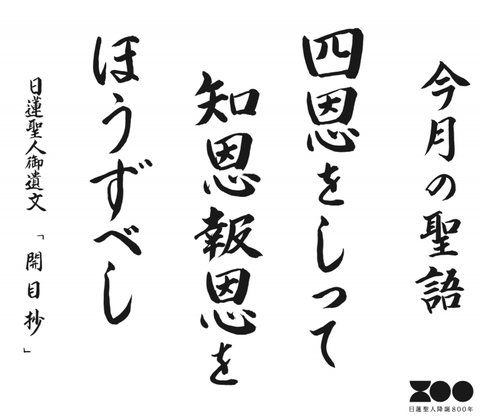 今月の聖語
四恩をしって
知恩報恩を
ほうずべし
日蓮聖人御遺文「開目抄」
800
日蓮聖人降誕800年